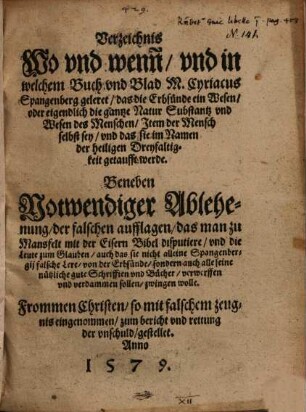 Verzeichnis
Wo vnd wenn̄/ vnd in
welchem Buch vnd Blad M. Cyriacus
Spangenberg geleret/ das die Erbsünde ein Wesen/
oder eigendlich die gantze Natur Substantz vnd
Wesen des Menschen/ Item der Mensch
selbst sey/ vnd das sie im Namen
der heiligen Dreyfaltig-
keit getaufft werde.
Beneben
Notwendiger Ablehe-
nung/ der falschen aufflagen/ das man zu
Mansfelt mit der Eisern Bibel disputiere/ vnd die
Leute zum Glauben/ auch das sie nicht alleine Spangenber-
gij falsche Lere/ von der Erbsünde/ sondern auch alle seine
nützliche gute Schrifften vnd Bücher/ verwerffen
vnd verdammen sollen/ zwingen wolle.
Frommen Christen/ so mit falschem zeug-
nis eingenommen/ zum bericht vnd rettung
der vnschuld/ gestellet.
Anno
1579.
XII